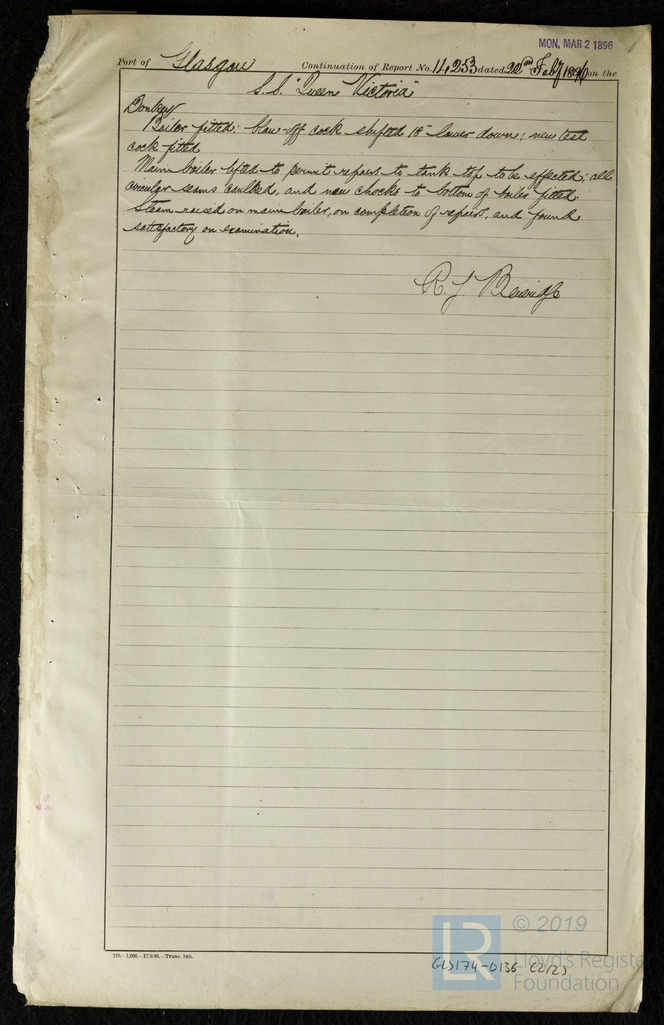 MON. MAR 2 1896
Port of Glasgow Continuation of Report No. 14,253 dated Feby 1896 on the
S.S. "Queen Victoria"
Donkey
Boiler fitted: blow-off cock shifted 18" lower down; new test
cock fitted
Main boiler lifted to permit repairs to tank top to be effected; all
circular seams caulked, and new chocks to bottom of boiler fitted.
Steam raised on main boiler, on completion of repairs, and found
satisfactory on examination.
R. J. Beveridge
Trans. Ink.
LR © 2019
Lloyd's Register
Foundation
GLS174-0136 (2/2)